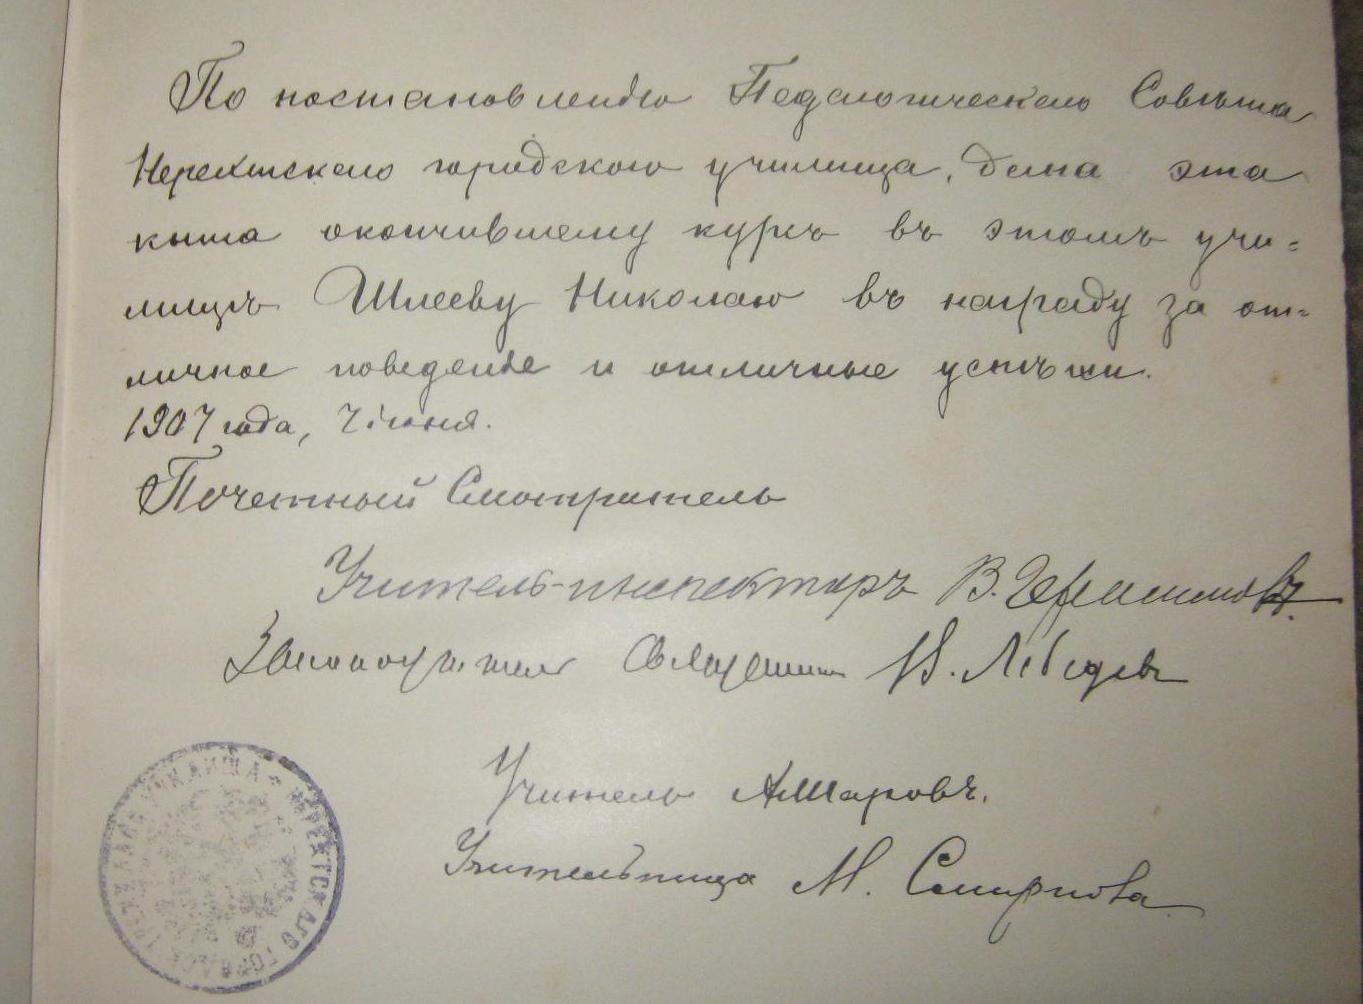 По постановленію Педагогическаго Совѣта
Нерехтскаго городского училища, дана эта
книга окончившему курсъ въ этомъ учи=
лищѣ Шлееву Николаю въ награду за от=
личное поведеніе и отличные успѣхи.
1907 года, 7 іюня.
Почетный Смотритель
Учитель-инспекторъ В. Герасимовъ.
Законоучитель Священник В. Лебедев
Учитель А. Шаровъ.
Учительница М. Смирнова
УЧИЛИЩА НЕРЕХТСКАГО